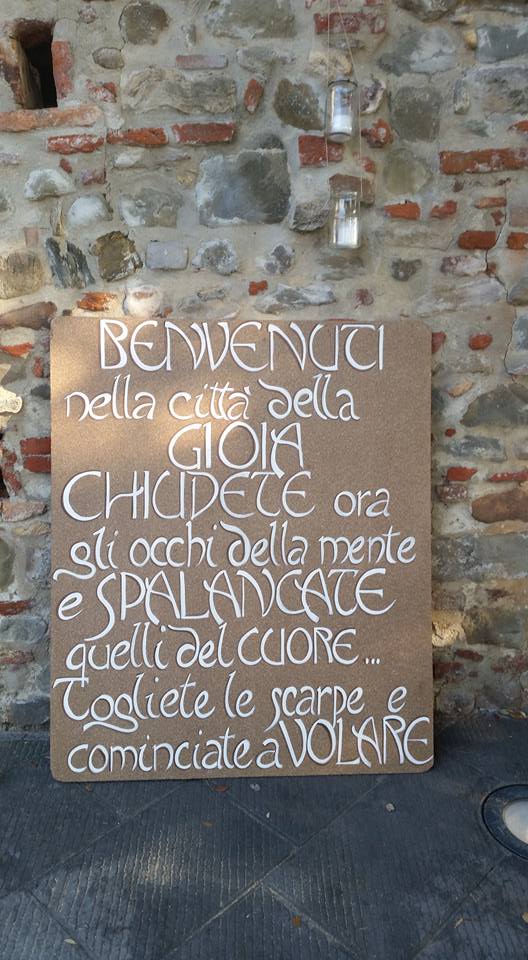 BENVENUTI
nella città della
GIOIA
CHIUDETE ora
gli occhi della mente
e SPALANCATE
quelli del CUORE...
Togliete le scarpe e
cominciate a VOLARE